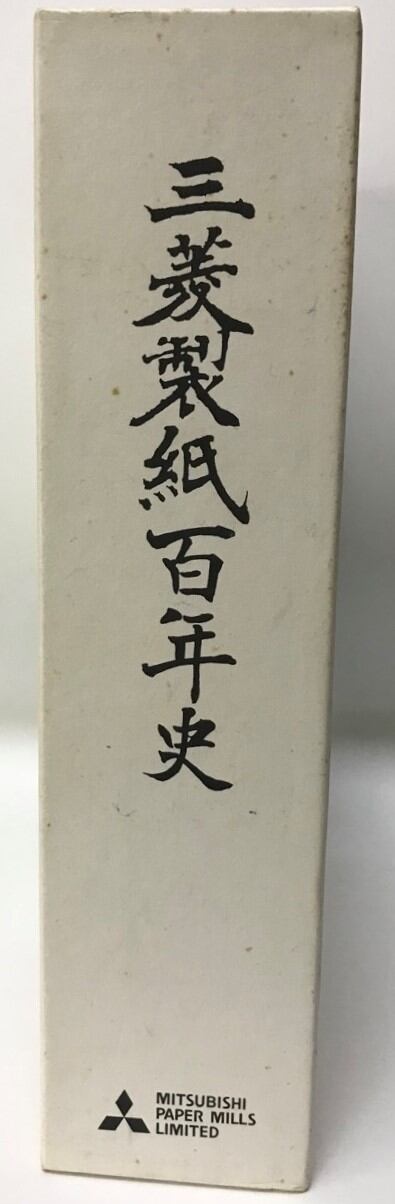 三菱製紙百年史
MITSUBISHI
PAPER MILLS
LIMITED